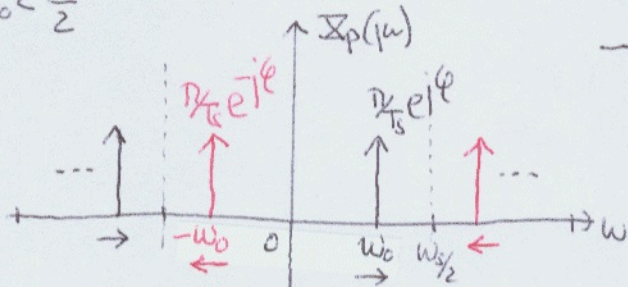 ω₀< —/2
X_p(jω)
π/Ts e^-jφ
π/Ts e^jφ
... ...
-ω₀ 0 ω₀ ωs/2 ω